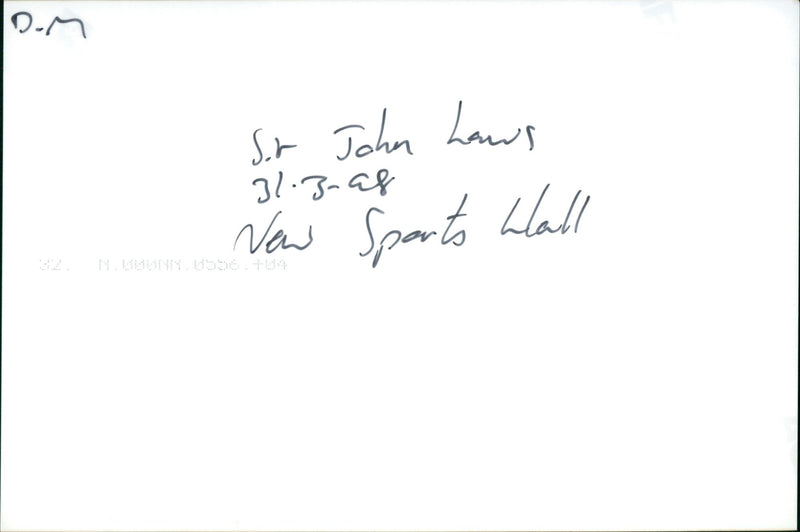 D.M
Sir John Laws
31.3-98
New Sports Hall
32. N.000NN.0556.+04